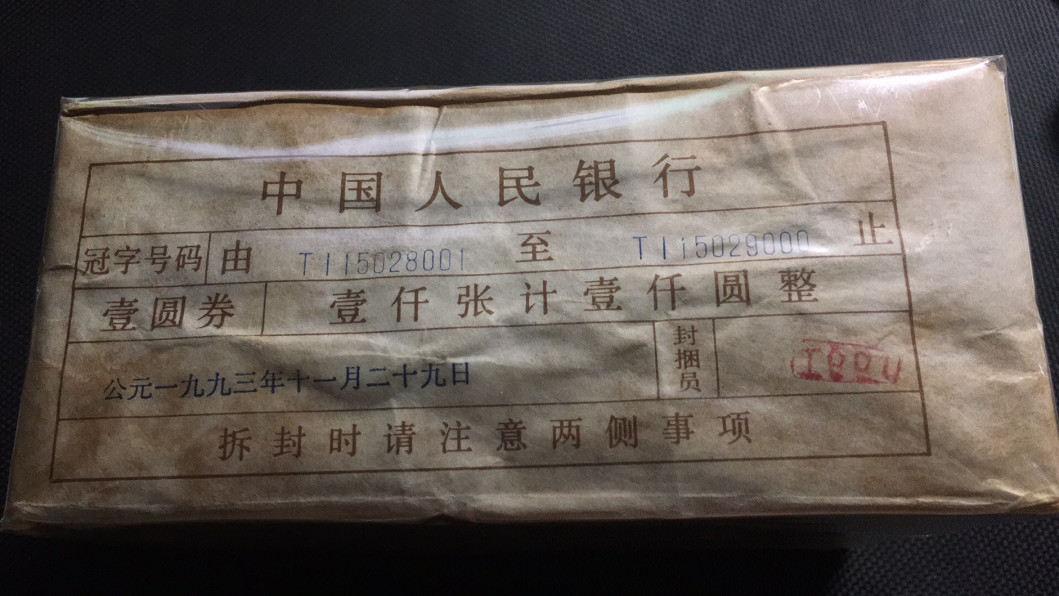 中国人民银行
冠字号码 由 TI15028001 至 TI15029000 止
壹圆券 壹仟张计壹仟圆整
公元一九九三年十一月二十九日 封捆员
拆封时请注意两侧事项